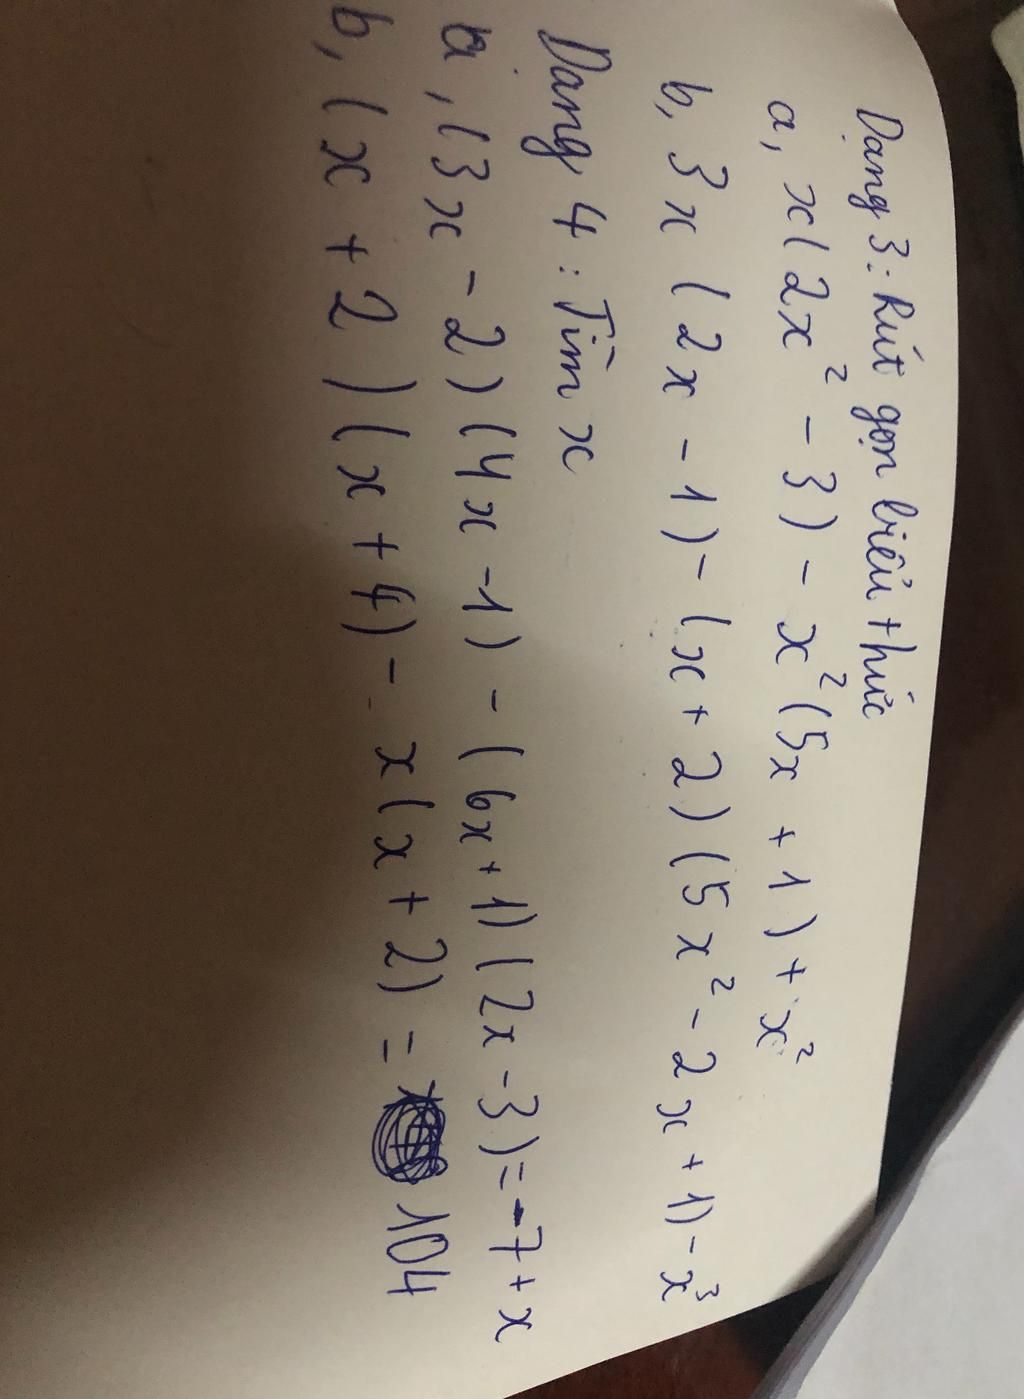 Dạng 3: Rút gọn biểu thức
a, x(2x² - 3) - x²(5x + 1) + x²
b, 3x (2x - 1) - (x + 2)(5x² - 2x + 1) - x³
Dạng 4: Tìm x
a, (3x - 2)(4x - 1) - (6x + 1)(2x - 3) = -7 + x
b, (x + 2)(x + 4) - x(x + 2) = 104